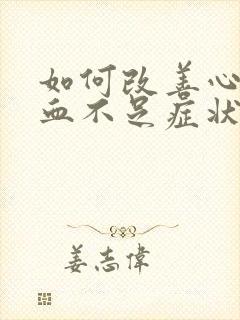 如何改善心
血不足症状
姜志偉